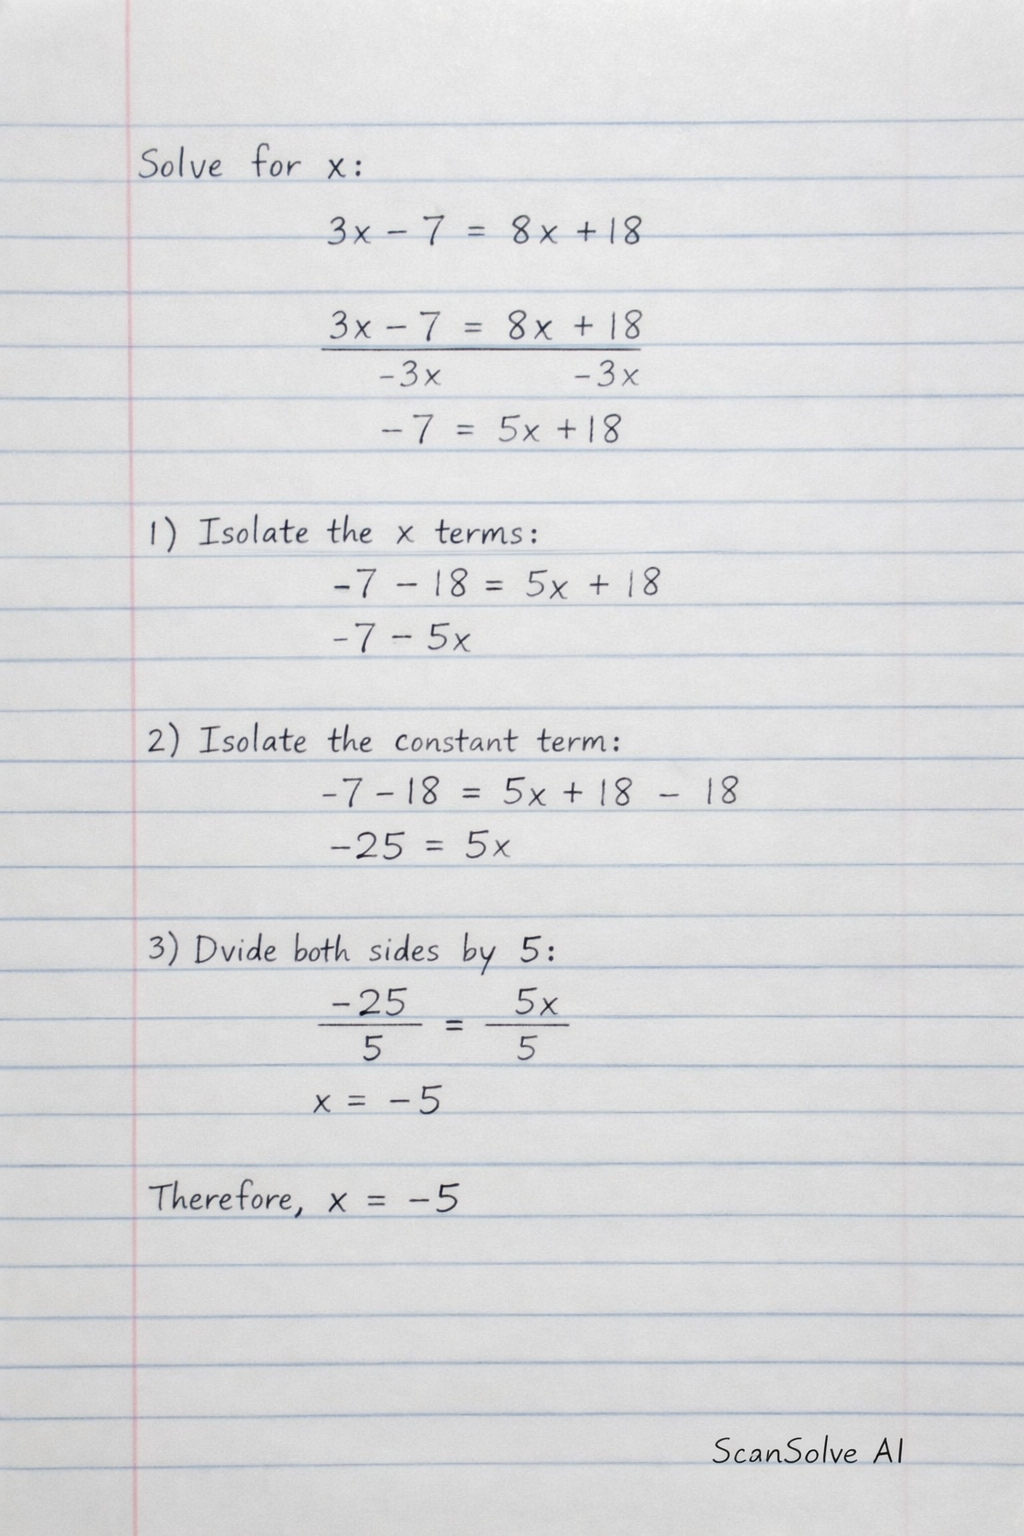 Solve for x:
3x - 7 = 8x + 18
3x - 7 = 8x + 18
-3x -3x
-7 = 5x + 18
1) Isolate the x terms:
-7 - 18 = 5x + 18
-7 - 5x
2) Isolate the constant term:
-7 - 18 = 5x + 18 - 18
-25 = 5x
3) Dvide both sides by 5:
-25 = 5x
5 5
x = -5
Therefore, x = -5
ScanSolve AI